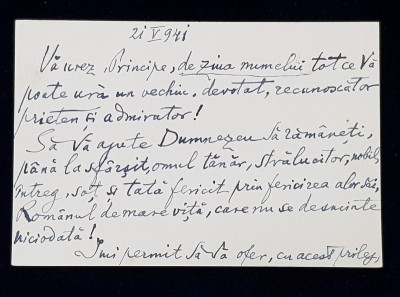 21 V 941
Vă urez, Principe, de ziua numelui tot ce Vă
poate ura un vechiu, devotat, recunoscător
prieten și admirator!
Să Vă ajute Dumnezeu să rămâneți,
până la sfârșit, omul tânăr, strălucitor, nobil,
întreg, soț și tată fericit prin fericirea alor săi,
Românul de mare viță, care nu se desminte
niciodată!
Îmi permit să Vă ofer, cu acest prilej,